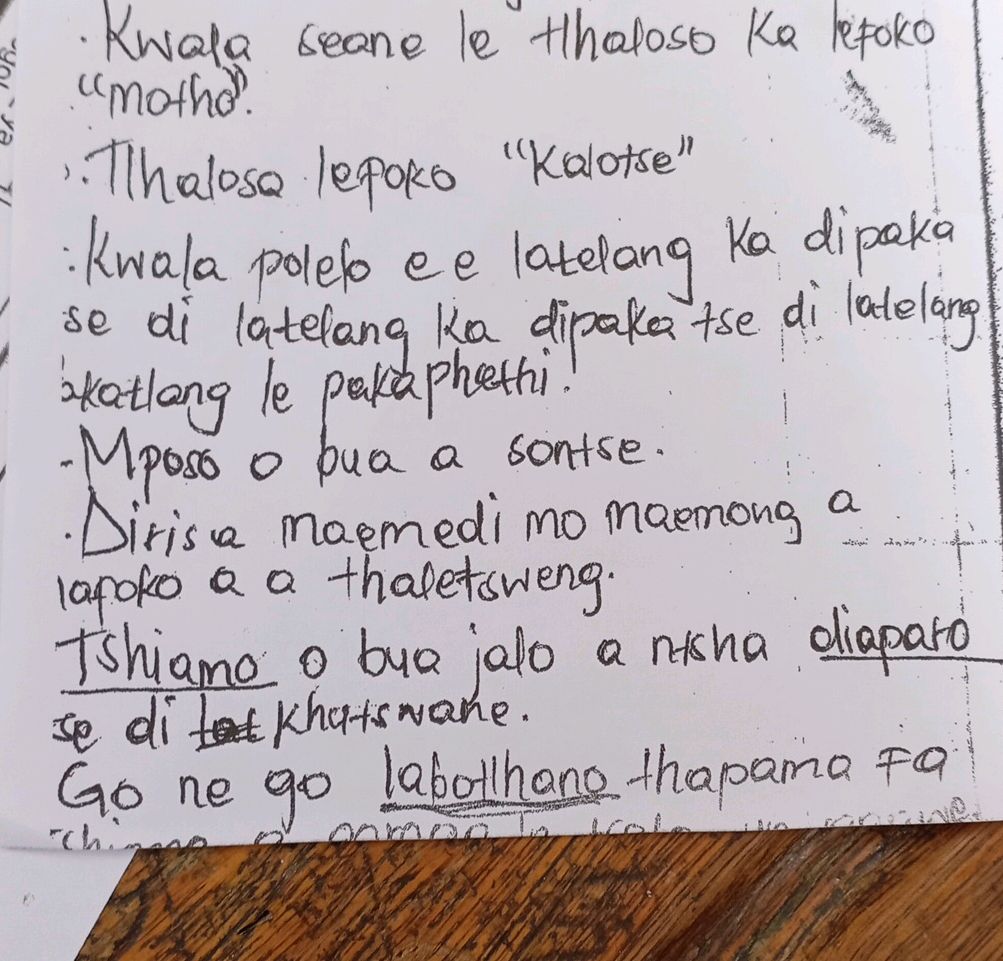 . Kwala seane le tlhaloso ka lefoko
"motho".
: Tlhalosa lefoko "Kalotse"
: Kwala polelo e e latelang ka dipaka
se di latelang ka dipaka tse di latelang
akatlang le pakaphethi!
- Mposo o bua a sontse.
. Dirisa maemedi mo maemong a
lafoko a a thaletsweng.
Tshiamo o bua jalo a ntsha diaparo
se di khutswane.
Go ne go labotlhano thapama fa